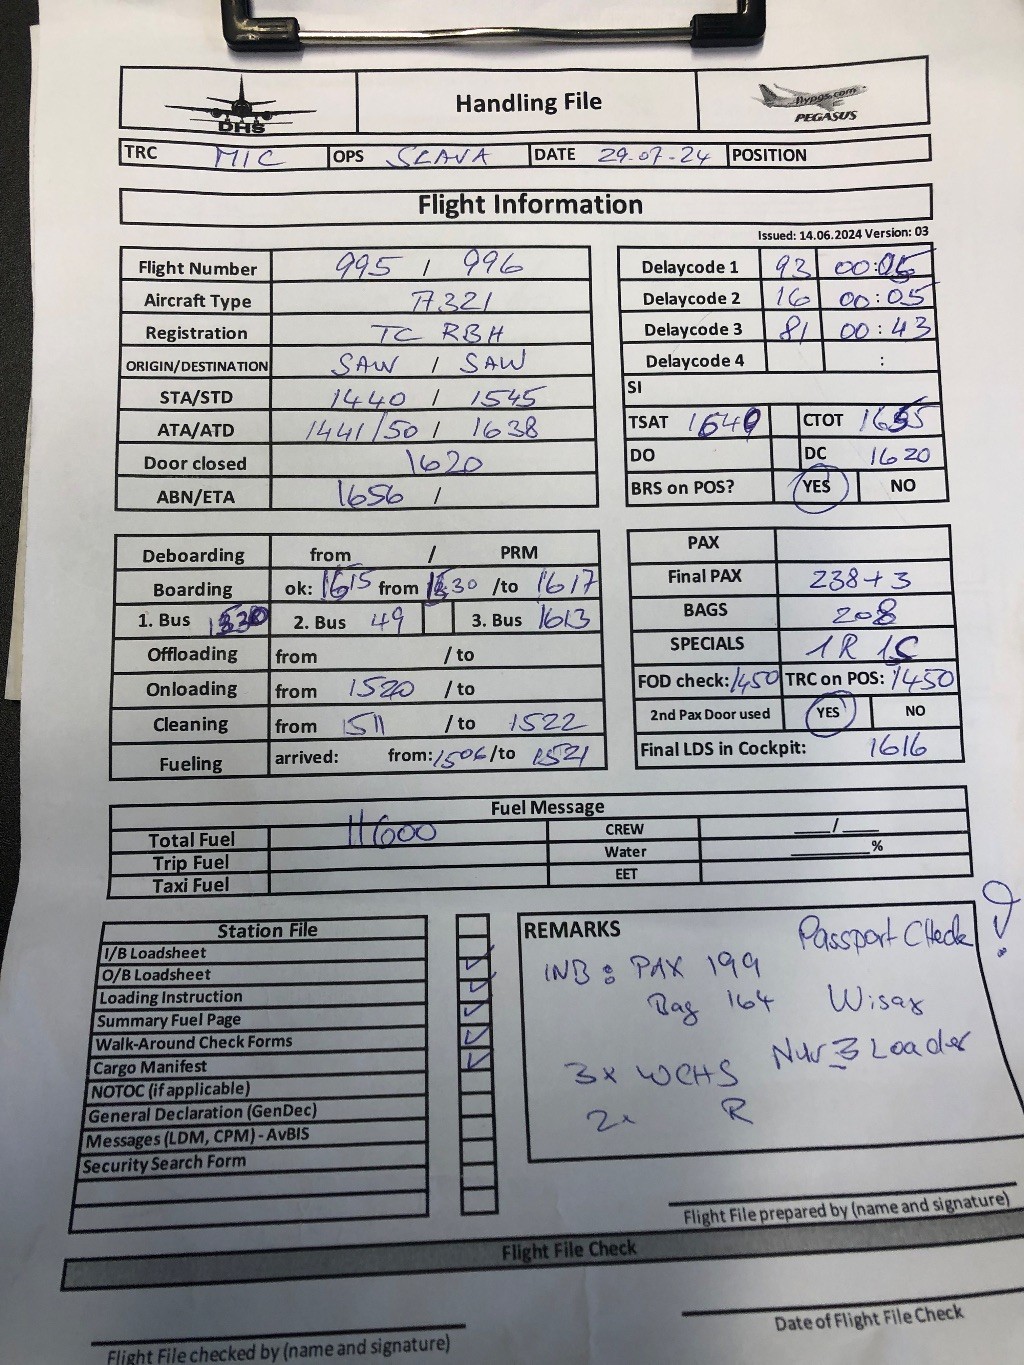 DHS
Handling File
flypgs.com
PEGASUS
TRC MIC OPS SLAVA DATE 29-07-24 POSITION
Flight Information
Issued: 14.06.2024 Version: 03
Flight Number 995 / 996
Aircraft Type A321
Registration TC RBH
ORIGIN/DESTINATION SAW / SAW
STA/STD 1440 / 1545
ATA/ATD 1441/50 / 1638
Door closed 1620
ABN/ETA 1656 /
Delaycode 1 93 00:05
Delaycode 2 16 00:05
Delaycode 3 81 00:43
Delaycode 4 :
SI
TSAT 1640 CTOT 1655
DO DC 1620
BRS on POS? YES NO
Deboarding from / PRM
Boarding ok: 1615 from 1530 /to 1617
1. Bus 1530 2. Bus 49 3. Bus 1613
Offloading from / to
Onloading from 1520 / to
Cleaning from 1511 / to 1522
Fueling arrived: from: 1506 /to 1521
PAX
Final PAX 238+3
BAGS 208
SPECIALS 1R 1S
FOD check: 1450 TRC on POS: 1450
2nd Pax Door used YES NO
Final LDS in Cockpit: 1616
Fuel Message
Total Fuel 11600 CREW ___/___
Trip Fuel Water ______%
Taxi Fuel EET
Station File
I/B Loadsheet
O/B Loadsheet
Loading Instruction
Summary Fuel Page
Walk-Around Check Forms
Cargo Manifest
NOTOC (if applicable)
General Declaration (GenDec)
Messages (LDM, CPM) - AvBIS
Security Search Form
REMARKS
Passport Check !
INB: PAX 199
Bag 164 Wisag
Nur 3 Loader
3x WCHS
2x R
Flight File prepared by (name and signature)
Flight File Check
Date of Flight File Check
Flight File checked by (name and signature)